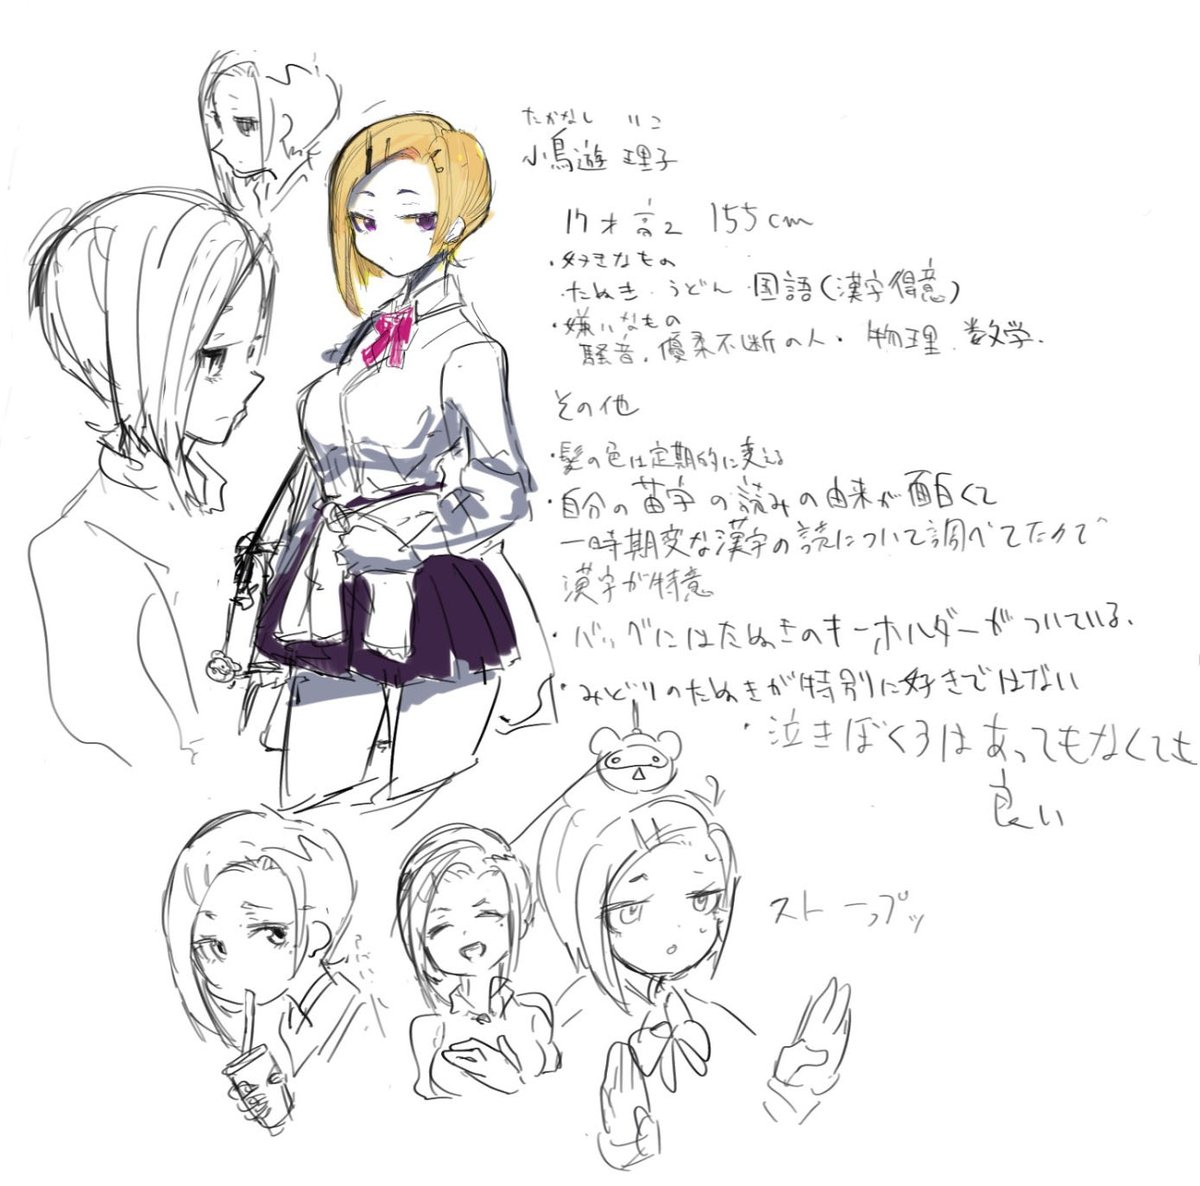 たかなし りこ
小鳥遊 理子
17才 高2 155cm
・好きなもの
たぬき・うどん・国語(漢字得意)
・嫌いなもの
騒音、優柔不断の人・物理、数学、
その他
・髪の色は定期的に変える
・自分の苗字の読みの由来が面白くて
一時期変な漢字の読について調べてたので
漢字が特意
・バッグにはたぬきのキーホルダーがついている、
・みどりのたぬきが特別に好きではない
・泣きぼくろはあってもなくても
良い
ストーップッ